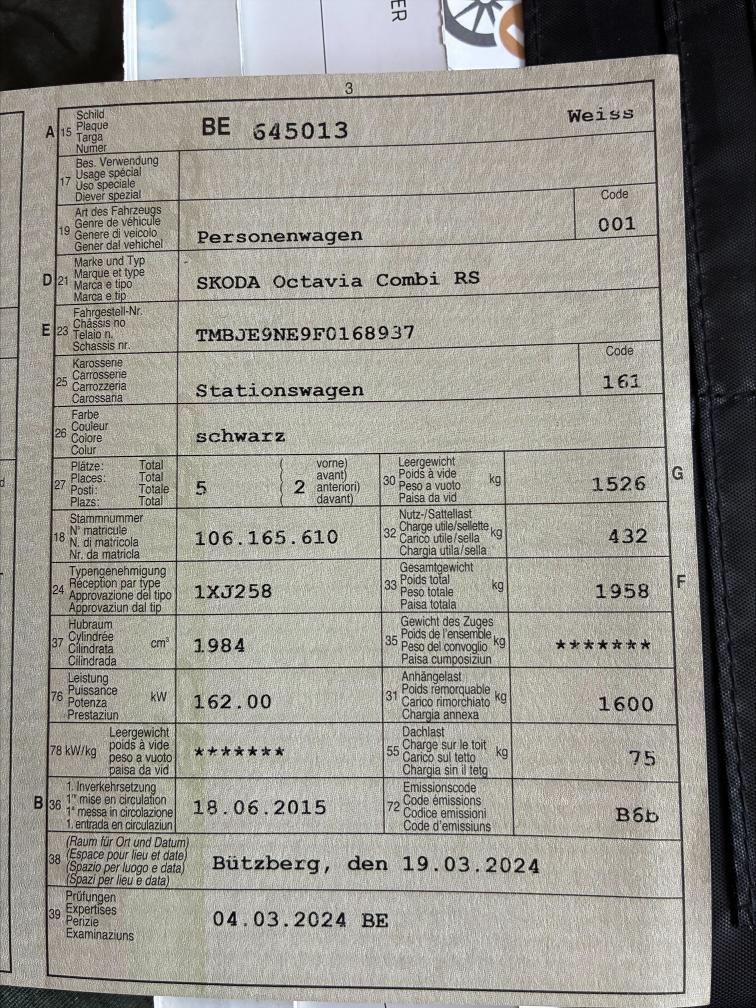 ER
3
A 15 Schild BE 645013 Weiss
Plaque
Targa
Numer
17 Bes. Verwendung
Usage spécial
Uso speciale
Diever spezial
19 Art des Fahrzeugs Code
Genre de véhicule
Genere di veicolo Personenwagen 001
Gener dal vehichel
D 21 Marke und Typ
Marque et type
Marca e tipo SKODA Octavia Combi RS
Marca e tip
E 23 Fahrgestell-Nr.
Châssis no
Telaio n. TMBJE9NE9F0168937
Schassis nr.
25 Karosserie Code
Carrosserie
Carrozzeria Stationswagen 161
Carossaria
26 Farbe
Couleur
Colore schwarz
Colur
27 Plätze: Total 5 ( 2 vorne)
Places: Total avant)
Posti: Totale anteriori)
Plazs: Total ( davant)
30 Leergewicht kg 1526 G
Poids à vide
Peso a vuoto
Paisa da vid
18 Stammnummer 106.165.610
N° matricule
N. di matricola
Nr. da matricla
32 Nutz-/Sattellast kg 432
Charge utile/sellette
Carico utile/sella
Chargia utila/sella
24 Typengenehmigung 1XJ258
Réception par type
Approvazione del tipo
Approvaziun dal tip
33 Gesamtgewicht kg 1958 F
Poids total
Peso totale
Paisa totala
37 Hubraum cm³ 1984
Cylindrée
Cilindrata
Cilindrada
35 Gewicht des Zuges kg *******
Poids de l'ensemble
Peso del convoglio
Paisa cumposiziun
76 Leistung kW 162.00
Puissance
Potenza
Prestaziun
31 Anhängelast kg 1600
Poids remorquable
Carico rimorchiato
Chargia annexa
78 kW/kg Leergewicht *******
poids à vide
peso a vuoto
paisa da vid
55 Dachlast kg 75
Charge sur le toit
Carico sul tetto
Chargia sin il tetg
B 36 1. Inverkehrsetzung 18.06.2015
1re mise en circulation
1a messa in circolazione
1. entrada en circulaziun
72 Emissionscode B6b
Code émissions
Codice emissioni
Code d'emissiuns
38 (Raum für Ort und Datum)
(Espace pour lieu et date) Bützberg, den 19.03.2024
(Spazio per luogo e data)
(Spazi per lieu e data)
39 Prüfungen
Expertises 04.03.2024 BE
Perizie
Examinaziuns